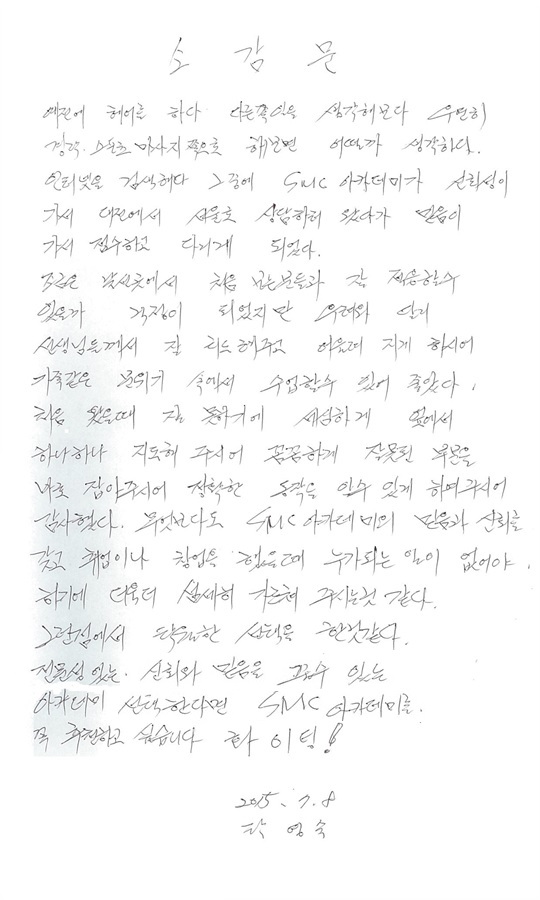 소 감 문
예전에 헤어를 하다 다른쪽일을 생각해보다 우연히
경락.스포츠 마사지쪽으로 해보면 어떨까 생각하다.
인터넷을 검색해다 그중에 SMC 아카데미가 신뢰성이
가서 대전에서 서울로 상담하러 왔다가 믿음이
가서 접수하고 다니게 되었다.
조금은 낯선곳에서 처음 보는분들과 잘 적응할수
있을까 걱정이 되었지만 우려와 달리
선생님들께서 잘 리드해주고 어울려 지게 하시어
가족같은 분위기 속에서 수업할수 있어 좋았다.
처음 왔을때 잘 못하기에 세심하게 옆에서
하나하나 지도해 주시어 꼼꼼하게 잘못된 부분을
바로 잡아주시어 정확한 동작을 알수 있게 하여주시어
감사했다. 무엇보다도 SMC 아카데미의 믿음과 신뢰를
갖고 취업이나 창업을 했을때 누가되는 일이 없어야.
하기에 더욱더 섬세히 가르쳐 주시는것 같다.
그관점에서 탁월한 선택을 한것같다.
전문성있는. 신뢰와 믿음을 고를수 있는
아카데미 선택한다면 SMC 아카데미를.
꼭 추천하고 싶습니다 화이팅!
2015. 7. 8
탁영숙